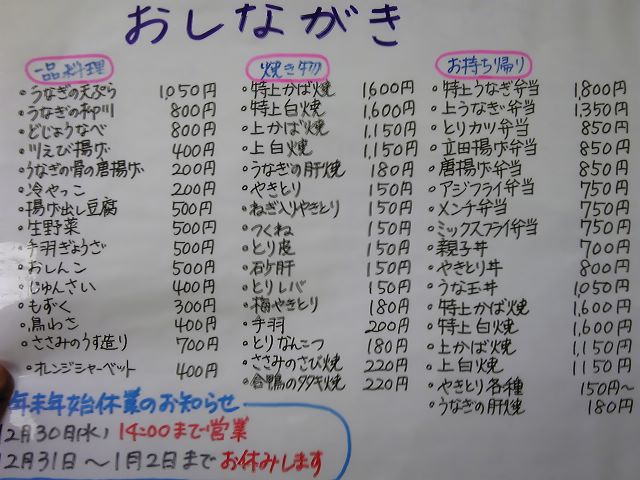 おしながき
一品料理
・うなぎの天ぷら 1,050円
・うなぎの柳川 800円
・どじょうなべ 800円
・川えび揚げ 400円
・うなぎの骨の唐揚げ 200円
・冷やっこ 200円
・揚げ出し豆腐 500円
・生野菜 500円
・手羽ぎょうざ 500円
・おしんこ 500円
・じゅんさい 400円
・もずく 300円
・鳥わさ 400円
・ささみのうす造り 700円
・オレンジシャーベット 400円
焼き物
・特上かば焼 1,600円
・特上白焼 1,600円
・上かば焼 1,150円
・上白焼 1,150円
・うなぎの肝焼 180円
・やきとり 150円
・ねぎ入りやきとり 150円
・つくね 150円
・とり皮 150円
・砂肝 150円
・とりレバ 150円
・梅やきとり 180円
・手羽 200円
・とりなんこつ 180円
・ささみのさび焼 220円
・合鴨のタタキ焼 220円
お持ち帰り
・特上うなぎ弁当 1,800円
・上うなぎ弁当 1,350円
・とりカツ弁当 850円
・立田揚げ弁当 850円
・唐揚げ弁当 850円
・アジフライ弁当 750円
・メンチ弁当 750円
・ミックスフライ弁当 750円
・親子丼 700円
・やきとり丼 800円
・うな玉丼 1,050円
・特上かば焼 1,600円
・特上白焼 1,600円
・上かば焼 1,150円
・上白焼 1150円
・やきとり各種 150円〜
・うなぎの肝焼 180円
年末年始休業のお知らせ
12月30日(水) 14:00まで営業
12月31日〜1月2日まで お休みします